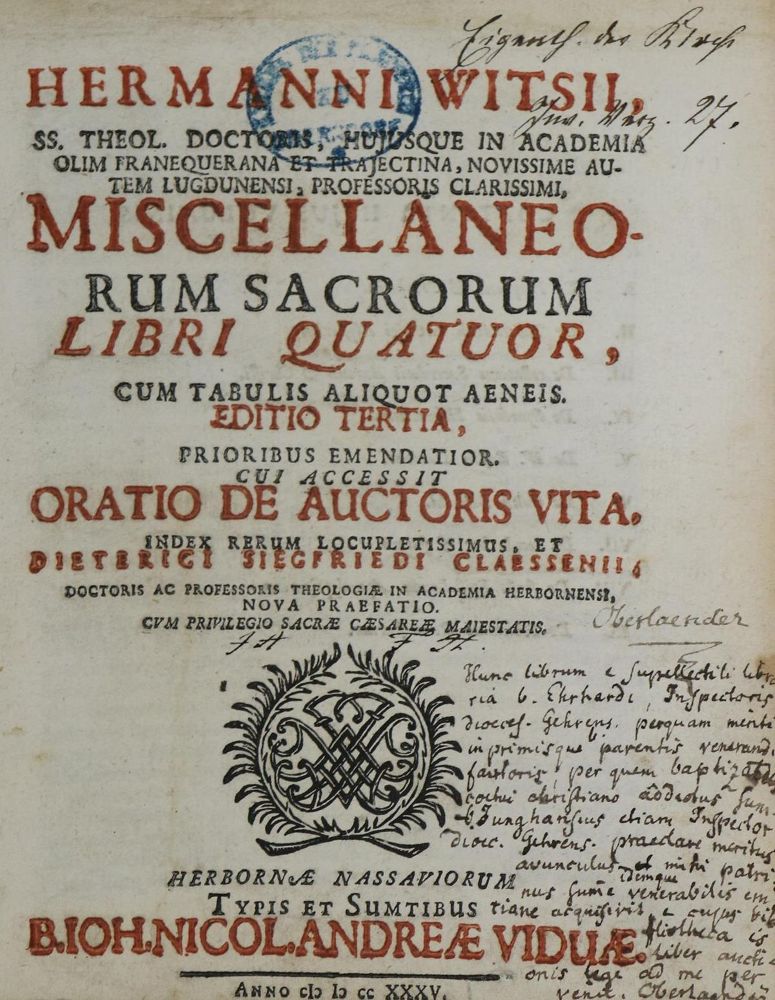 Eigenth. der Kirch
HERMANNI WITSII,
Inv. Verz. 27.
SS. THEOL. DOCTORIS, HUJUSQUE IN ACADEMIA
OLIM FRANEQUERANA ET TRAJECTINA, NOVISSIME AU-
TEM LUGDUNENSI, PROFESSORIS CLARISSIMI,
MISCELLANEO-
RUM SACRORUM
LIBRI QUATUOR,
CUM TABULIS ALIQUOT AENEIS.
EDITIO TERTIA,
PRIORIBUS EMENDATIOR.
CUI ACCESSIT
ORATIO DE AUCTORIS VITA.
INDEX RERUM LOCUPLETISSIMUS, ET
DIETERICI SIEGFRIEDI CLAESSENII,
DOCTORIS AC PROFESSORIS THEOLOGIÆ IN ACADEMIA HERBORNENSI,
NOVA PRAEFATIO.
CVM PRIVILEGIO SACRÆ CÆSAREÆ MAIESTATIS.
Oberlaender
Hunc librum e supellectili libra
ria b. Ehrhardi, Inspectoris
dioeces. Gehrens. perquam meriti
inprimisque parentis venerandi
fautoris, per quem baptizatus
coetui christiano addictus sum
b. Junghansius etiam Inspector
dioec. Gehrens. praeclare meritus
avunculus et mihi patri
idemque
nus summe venerabilis em
tione acquisivit e cujus bib
liotheca is
liber aucti
onis lege ad me per
venit. Oberlaender
HERBORNÆ NASSAVIORUM
TYPIS ET SUMTIBUS
B. IOH. NICOL. ANDREÆ VIDUÆ.
ANNO CIↃ IↃ CC XXXV.